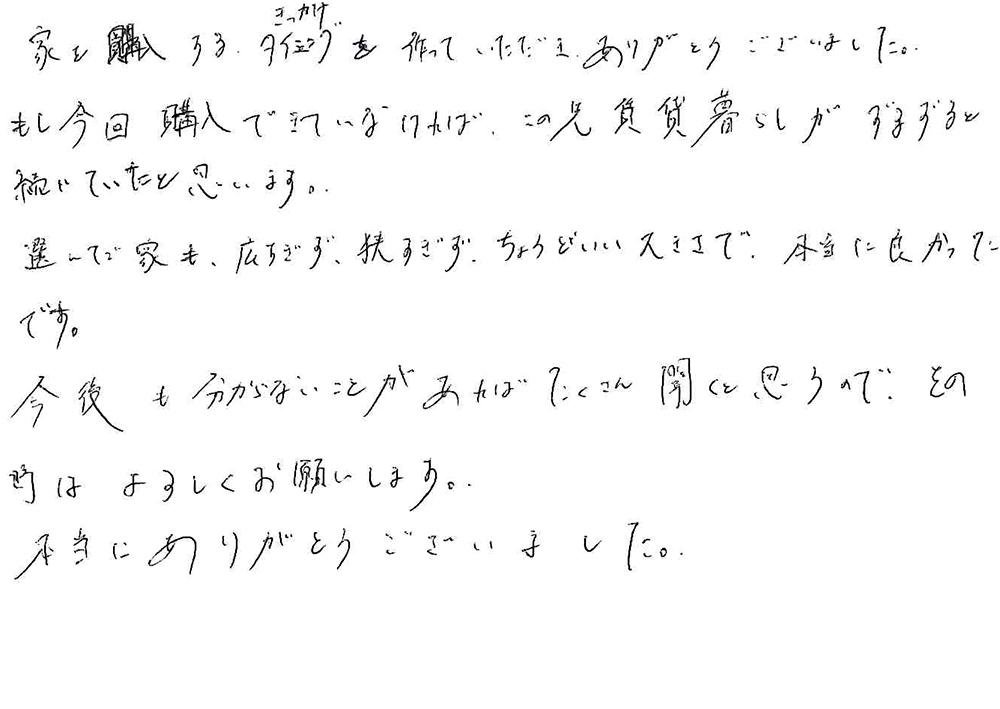 きっかけ
家を購入する、タイミングを作っていただき、ありがとうございました。
もし今回購入できていなければ、この先賃貸暮らしがずるずると
続いていたと思います。
選んで家も、広すぎず、狭すぎず、ちょうどいい大きさで、本当に良かった
です。
今後も分からないことがあればたくさん聞くと思うので、その
時はよろしくお願いします。
本当にありがとうございました。